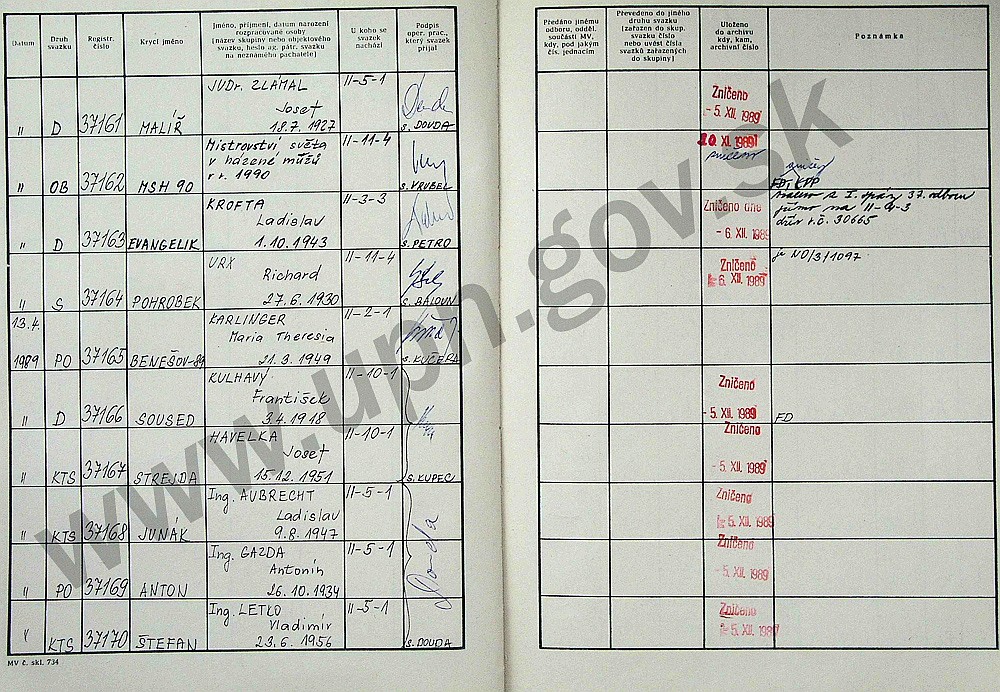 Datum
Druh svazku
Registr. číslo
Krycí jméno
Jméno, příjmení, datum narození
rozpracované osoby
(název skupiny nebo objektového
svazku, heslo ag. pátr. svazku
na neznámého pachatele)
U koho se
svazek
nachází
Podpis
oper. prac.,
který svazek
přijal
Předáno jinému
odboru, odděl.
součásti MV,
kdy, pod jakým
čís. jednacím
Převedeno do jiného
druhu svazku
(zařazen do skup.
svazku číslo
nebo uvést čísla
svazků zařazených
do skupiny)
Uloženo
do archivu
kdy, kam,
archivní číslo
Poznámka
JUDr. ZLÁMAL II-5-1
Josef
" D 37161 MALÍŘ 18.7.1927 s. DOUDA
Zničeno
-5. XII. 1989
Mistrovství světa II-11-4
v házené mužů
" OB 37162 MSH 90 v r. 1990 s. VRUBEL
20. XI. 1989
zničeno
KROFTA II-3-3
Ladislav
" D 37163 EVANGELIK 1.10.1943 s. PETRO
Zničeno dne
- 6. XII. 1989
37. odboru
II-9-3
dřív r.č. 30665
URX II-11-4
Richard
" S 37164 POHROBEK 27.6.1930 s. BALOUN
Zničeno
6. XII. 1989
je NO/3/1097
13.4. KARLINGER II-2-1
Maria Theresia
1989 PO 37165 BENEŠOV-89 21.3.1949 s. KUČERA
KULHAVÝ II-10-1
František
" D 37166 SOUSED 3.4.1918
Zničeno
-5. XII. 1989
FD
HAVELKA II-10-1
Josef
" KTS 37167 STREJDA 15.12.1951 s. KUPEC
Zničeno
-5. XII. 1989
Ing. AUBRECHT II-5-1
Ladislav
" KTS 37168 JUNÁK 9.8.1947
Zničeno
5. XII. 1989
Ing. GAZDA II-5-1
Antonín
" PO 37169 ANTON 26.10.1934
Zničeno
-5. XII. 1989
Ing. LETKO II-5-1
Vladimír
" KTS 37170 ŠTEFAN 23.6.1956 s. DOUDA
Zničeno
5. XII. 1989
MV č. skl. 734
www.upn.gov.sk